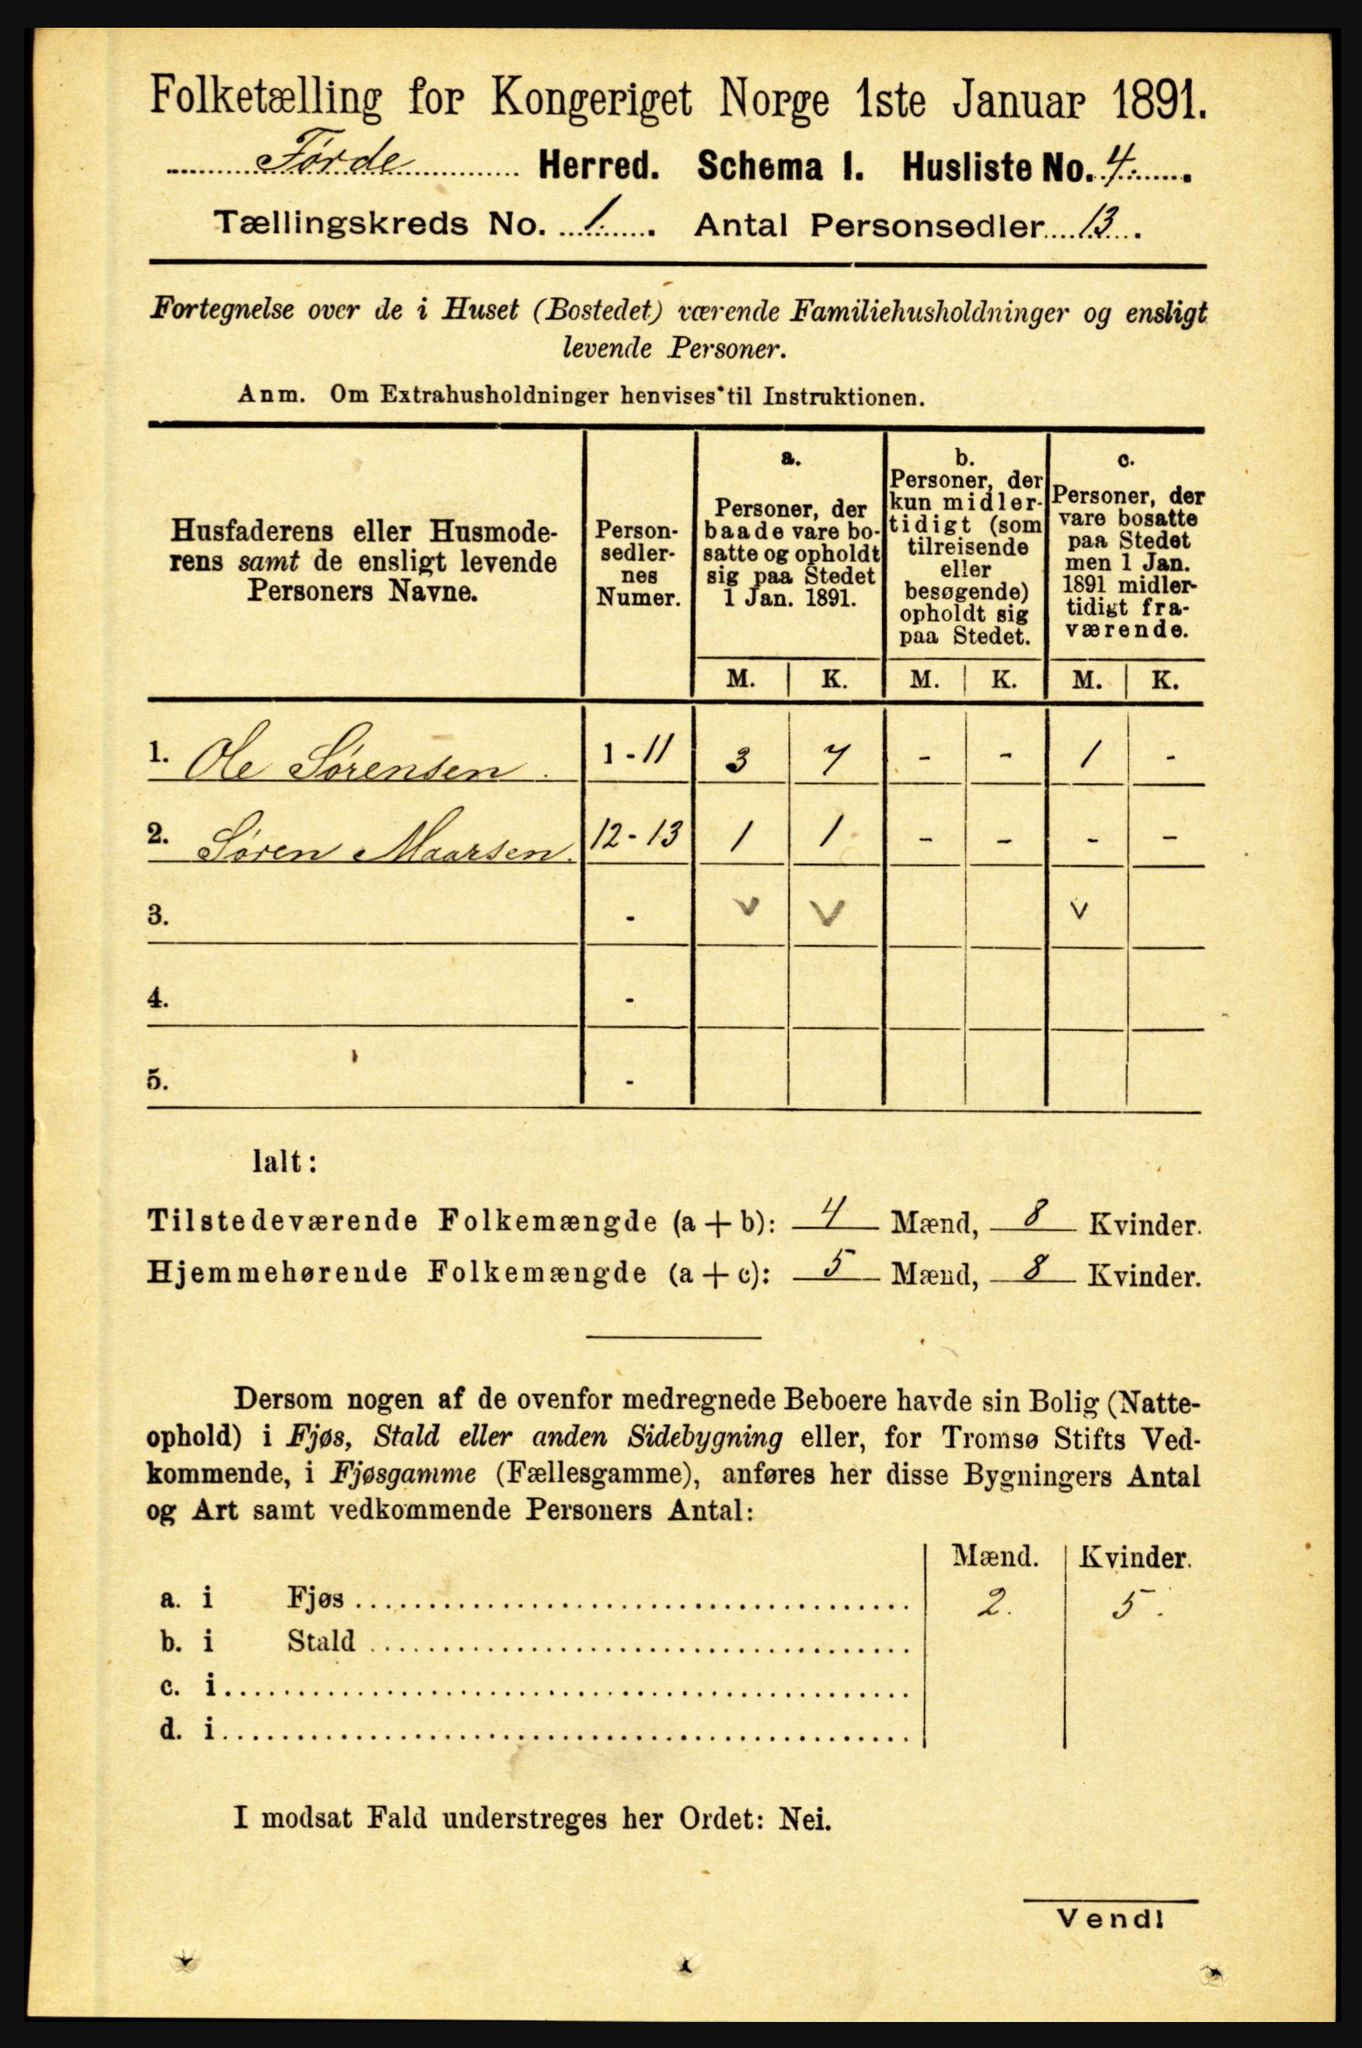 Folketælling for Kongeriget Norge 1ste Januar 1891.
Førde Herred. Schema I. Husliste No. 4.
Tællingskreds No. 1. Antal Personsedler 13.
Fortegnelse over de i Huset (Bostedet) værende Familiehusholdninger og ensligt
levende Personer.
Anm. Om Extrahusholdninger henvises til Instruktionen.
Husfaderens eller Husmode-
rens samt de ensligt levende
Personers Navne.
Person-
sedler-
nes
Numer.
a.
Personer, der
baade vare bo-
satte og opholdt
sig paa Stedet
1 Jan. 1891.
b.
Personer, der
kun midler-
tidigt (som
tilreisende
eller
besøgende)
opholdt sig
paa Stedet.
c.
Personer, der
vare bosatte
paa Stedet
men 1 Jan.
1891 midler-
tidigt fra-
værende.
M. K. M. K. M. K.
1. Ole Sørensen. 1 - 11 3 7 - - 1 -
2. Søren Maarsen. 12 - 13 1 1 - - - -
3. - v v v
4. -
5. -
Ialt:
Tilstedeværende Folkemængde (a + b): 4 Mænd, 8 Kvinder.
Hjemmehørende Folkemængde (a + c): 5 Mænd, 8 Kvinder.
Dersom nogen af de ovenfor medregnede Beboere havde sin Bolig (Natte-
ophold) i Fjøs, Stald eller anden Sidebygning eller, for Tromsø Stifts Ved-
kommende, i Fjøsgamme (Fællesgamme), anføres her disse Bygningers Antal
og Art samt vedkommende Personers Antal:
Mænd. Kvinder.
a. i Fjøs 2. 5.
b. i Stald
c. i
d. i
I modsat Fald understreges her Ordet: Nei.
Vend!